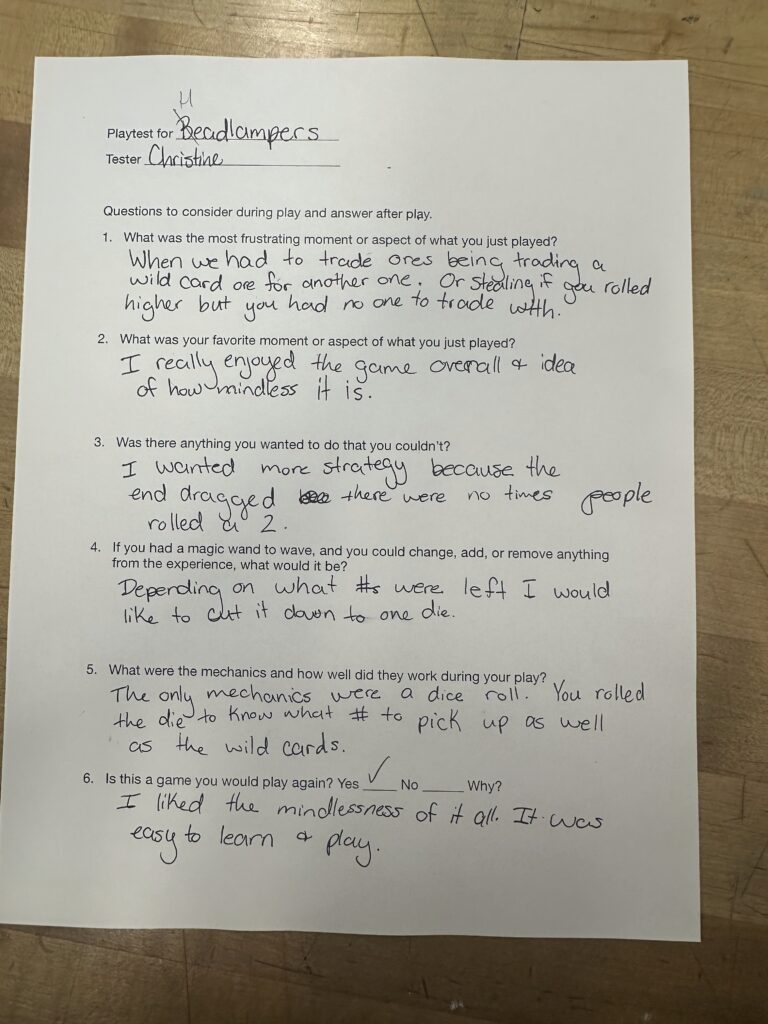 H
Playtest for Beadlampers
Tester Christine
Questions to consider during play and answer after play.
1. What was the most frustrating moment or aspect of what you just played?
When we had to trade ores being trading a
wild card ore for another one. Or stealing if you rolled
higher but you had no one to trade with.
2. What was your favorite moment or aspect of what you just played?
I really enjoyed the game overall & idea
of how mindless it is.
3. Was there anything you wanted to do that you couldn't?
I wanted more strategy because the
end dragged there were no times people
rolled a 2.
4. If you had a magic wand to wave, and you could change, add, or remove anything
from the experience, what would it be?
Depending on what #s were left I would
like to cut it down to one die.
5. What were the mechanics and how well did they work during your play?
The only mechanics were a dice roll. You rolled
the die to know what # to pick up as well
as the wild cards.
6. Is this a game you would play again? Yes ✓ No ____ Why?
I liked the mindlessness of it all. It was
easy to learn & play.